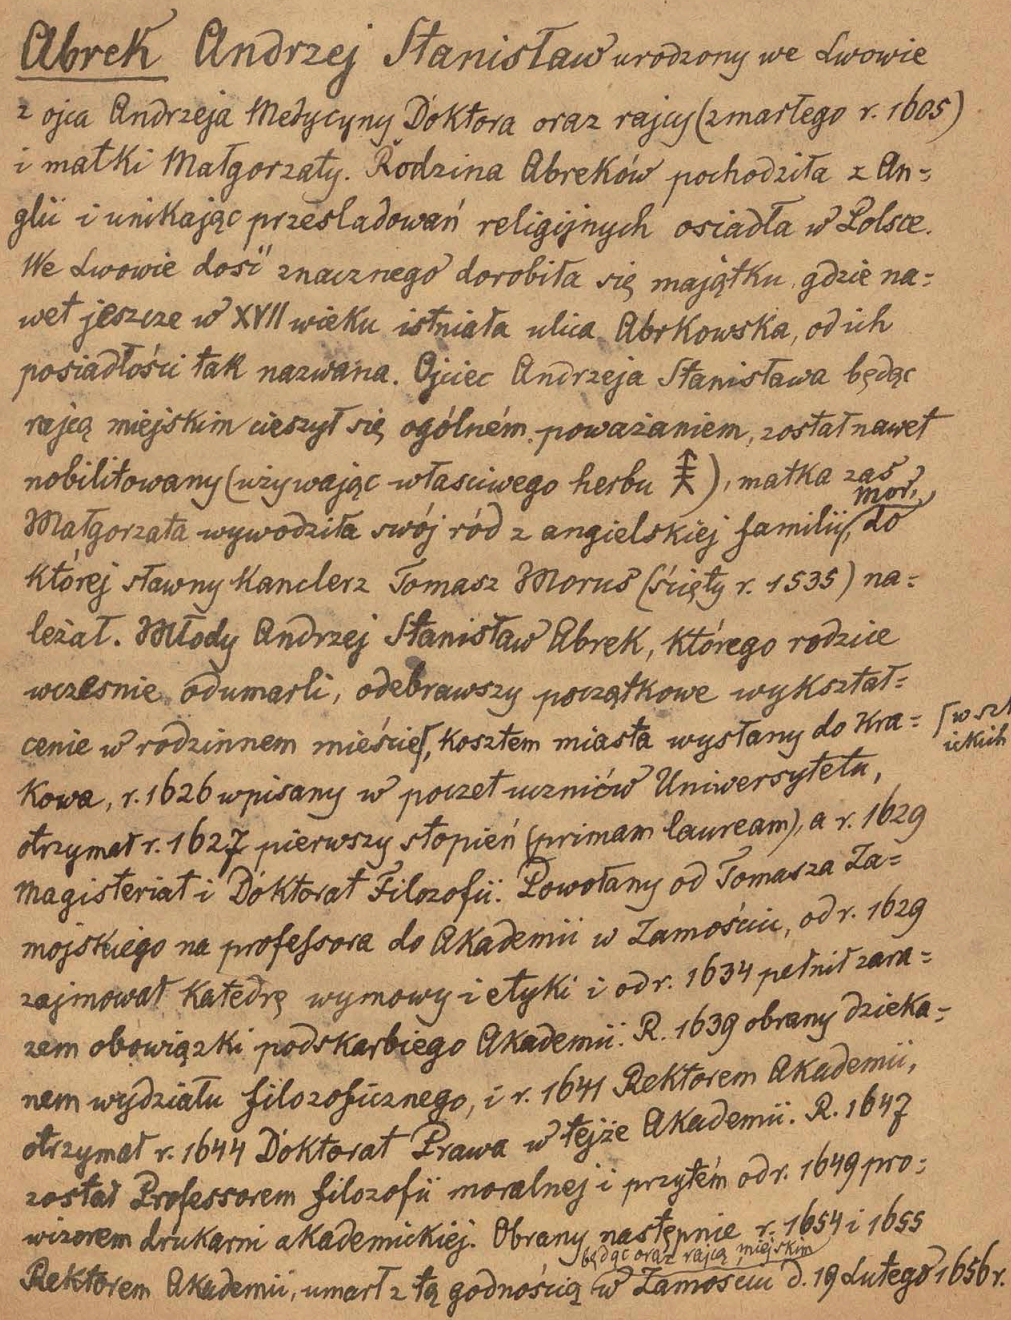 Abrek Andrzej Stanisław urodzony we Lwowie
z ojca Andrzeja Medycyny Doktora oraz rajcy (zmarłego r. 1605)
i matki Małgorzaty. Rodzina Abreków pochodziła z An=
glii i unikając prześladowań religijnych osiadła w Polsce.
We Lwowie dość znacznego dorobiła się majątku, gdzie na=
wet jeszcze w XVII wieku istniała ulica Abrkowska, od ich
posiadłości tak nazwana. Ojciec Andrzeja Stanisława będąc
rajcą miejskim cieszył się ogólném poważaniem, został nawet
nobilitowany (używając właściwego herbu ), matka zaś
Mor.,
Małgorzata wywodziła swój ród z angielskiej familii, do
której sławny Kanclerz Tomasz Morus (ścięty r. 1535) na=
leżał. Młody Andrzej Stanisław Abrek, którego rodzice
wcześnie odumarli, odebrawszy początkowe wykształ=
cenie w rodzinnem mieście, kosztem miasta wysłany do Kra=
Kowa, r. 1626 wpisany w poczet uczniów Uniwersytetu,
otrzymał r. 1627 pierwszy stopień (primam lauream), a r. 1629
magisteriat i Doktorat Filozofii. Powołany od Tomasza Za=
mojskiego na professora do Akademii w Zamościu, od r. 1629
zajmował Katedrę wymowy i etyki i od r. 1634 pełnił zara=
zem obowiązki podskarbiego Akademii. R. 1639 obrany dzieka=
nem wydziału filozoficznego, i r. 1641 Rektorem Akademii,
otrzymał r. 1644 Doktorat Prawa w tejże Akademii. R. 1647
został Professorem filozofii moralnej i przytém od r. 1649 pro=
wizorem drukarni akademickiej. Obrany następnie r. 1654 i 1655
będąc oraz rajcą miejskim
Rektorem Akademii, umarł z tą godnością w Zamościu d. 19 Lutego 1656 r.